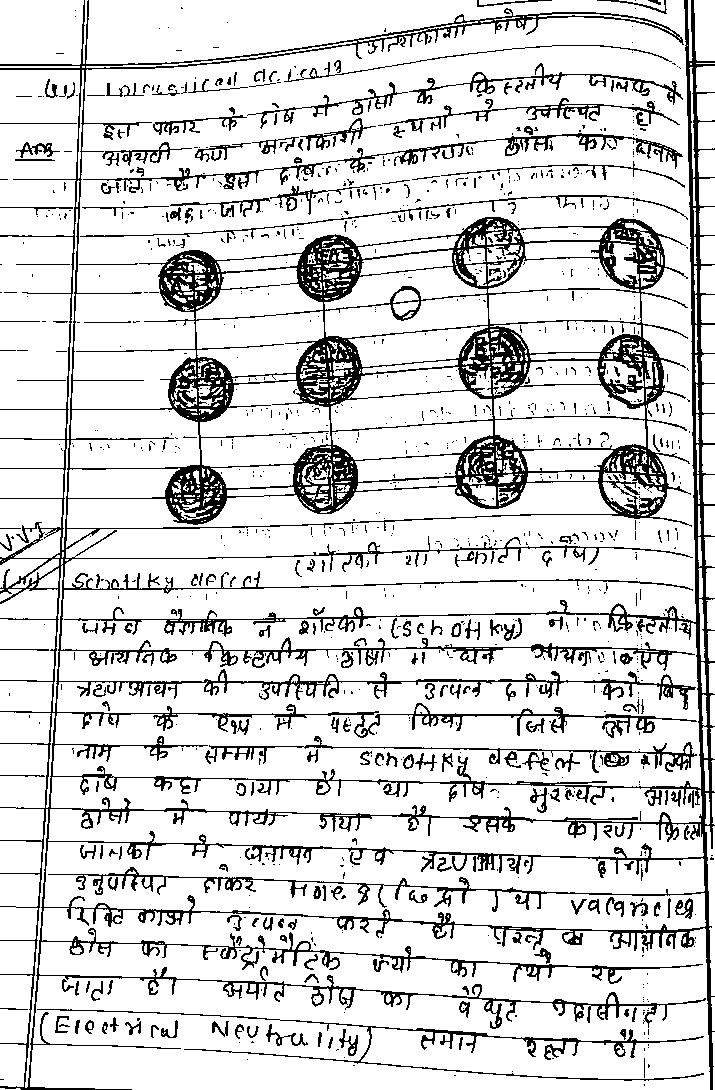 (ii) Interstitial defects (अंतराकाशी दोष)
Ans इस प्रकार के दोष में ठोसो के क्रिस्टलीय जालक में
अवयवी कण अन्तराकाशी स्थलो में उपस्थित हो
जाते है। इस दोष के कारण ठोस का घनत्व
बढ़ जाता है।
V.V.I
(iii) Schottky defect (शॉटकी या स्कॉटी दोष)
जर्मन वैज्ञानिक ने शॉटकी (Schottky) ने क्रिस्टलीय
आयनिक क्रिस्टलीय ठोसो में धन आयन एंव
ऋणआयन की उपस्थिति से उत्पन्न दोषो को बिन्दु
दोष के रूप में प्रस्तुत किया जिसे उनके
नाम के सम्मान में Schottky defect (शॉटकी
दोष कहा गया है। या दोष मुख्यतः आयनिक
ठोसो में पाया गया है। इसके कारण क्रिस्टल
जालको में धनायन एंव ऋणआयन दोनो
अनुपस्थित होकर Holes (छिद्रो) या vacancies
रिक्तिकाओ उत्पन्न करते है। परन्तु आयनिक
ठोस का ज्यों का त्यों रह
जाता है। अर्थात ठोस का वैधुत उदासीनता
(Electrical Neutrality) समान रहता है।